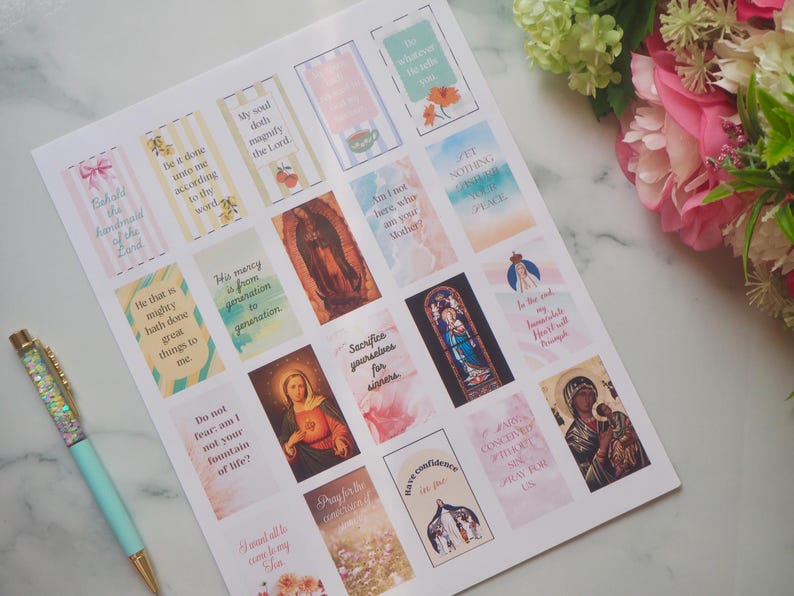 Behold
the
handmaid
of the
Lord.
Be it done
unto me
according
to thy
word.
My soul
doth
magnify
the Lord.
hath
rejoiced in
God my
Do
whatever
He tells
you.
He that is
mighty
hath done
great
things to
me.
His mercy
is from
generation
to
generation.
Am I not
here, who
am your
Mother?
LET
NOTHING
DISTURB
YOUR
PEACE.
Do not
fear; am I
not your
fountain
of life?
Sacrifice
yourselves
for
sinners.
In the end,
my
Immaculate
Heart will
Triumph.
I want all to
come to my
Son.
Pray for the
conversion of
sinners
Have confidence
in me
MARY,
CONCEIVED
WITHOUT
SIN,
PRAY FOR
US.